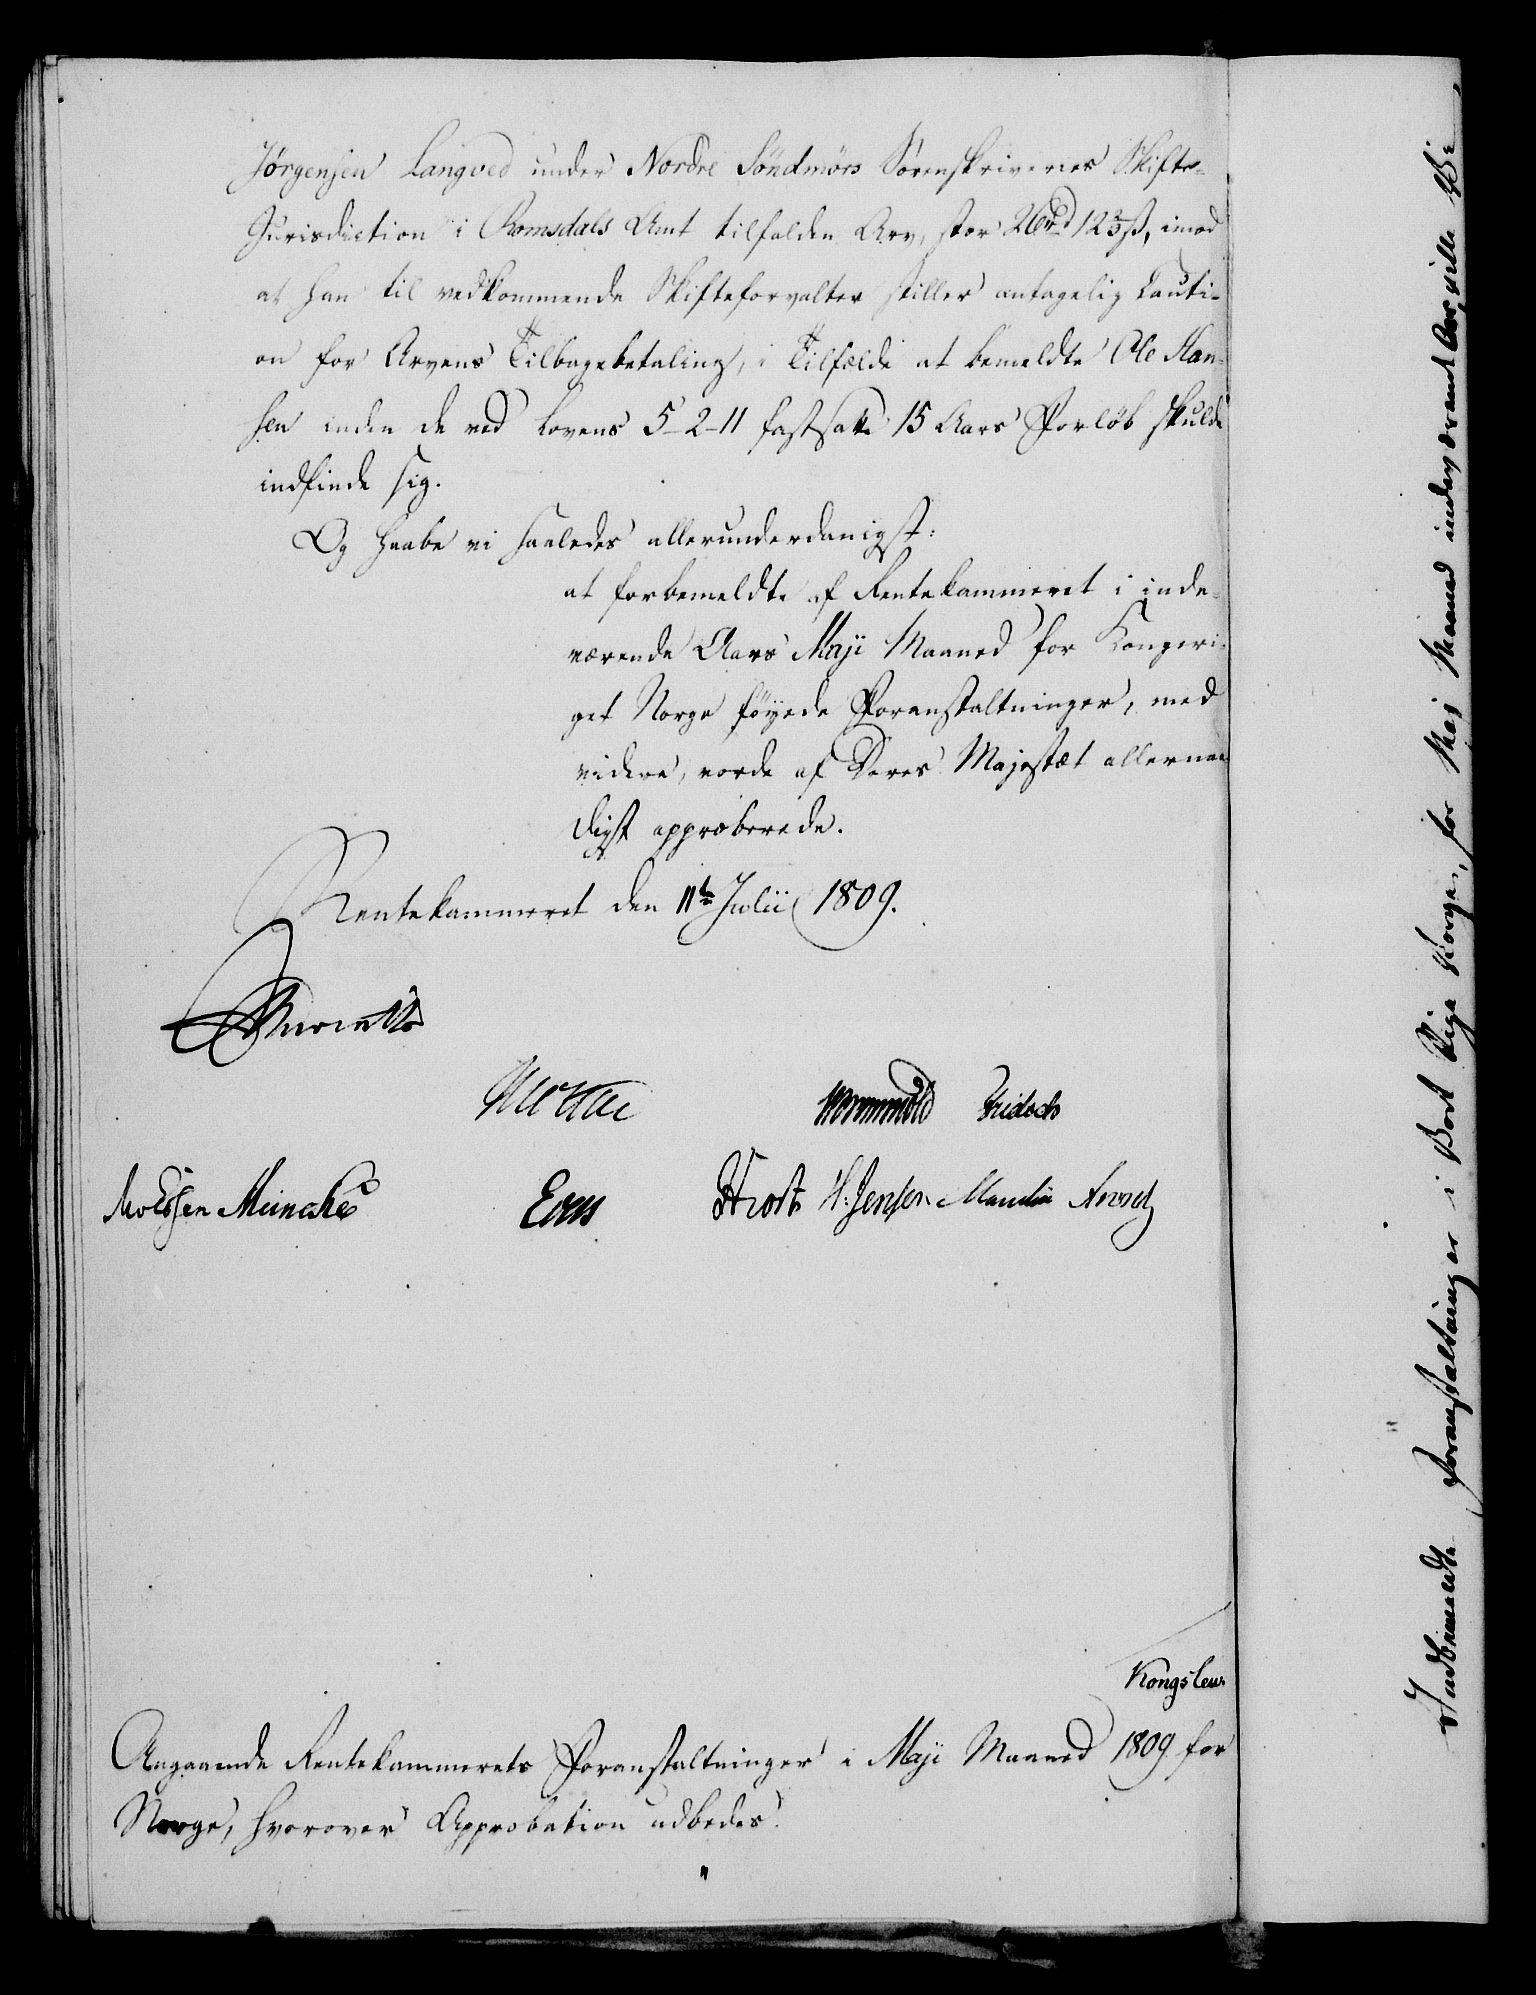 Jørgensen Langved under Nordre Söndmörs Sorenskriveries Skifte-
Jurisdiction i Romsdals Amt tilfalden Arv, stor 26rd 123ß, imod
at han til vedkommende Skifteforvalter stiller antagelig Cauti-
on for Arvens Tilbagebetaling, i Tilfælde at bemeldte Ole Han-
sen inden de ved Lovens 5-2-11 fastsatte 15 Aars Forløb skulde
indfinde sig.
Og haabe vi saaledes allerunderdanigst:
at forbemeldte af Rentekammeret i inde-
værende Aars Maji Maaned for Kongeri-
get Norge föyede Foranstaltninger, med
videre, vorde af Deres Majestæt allernaa
digst approberede.
Rentekammeret den 11te Julii 1809.
Wormskiold
Knoph H. Jensen
Meinche
Kongslew
Angaaende Rentekammerets Foranstaltninger i Maji Maaned 1809 for
Norge, hvorover Approbation udbedes.
Indbemeldte Foranstaltninger i Vort Rige Norge, for Maj Maaned indeværende Aar, ville Vi